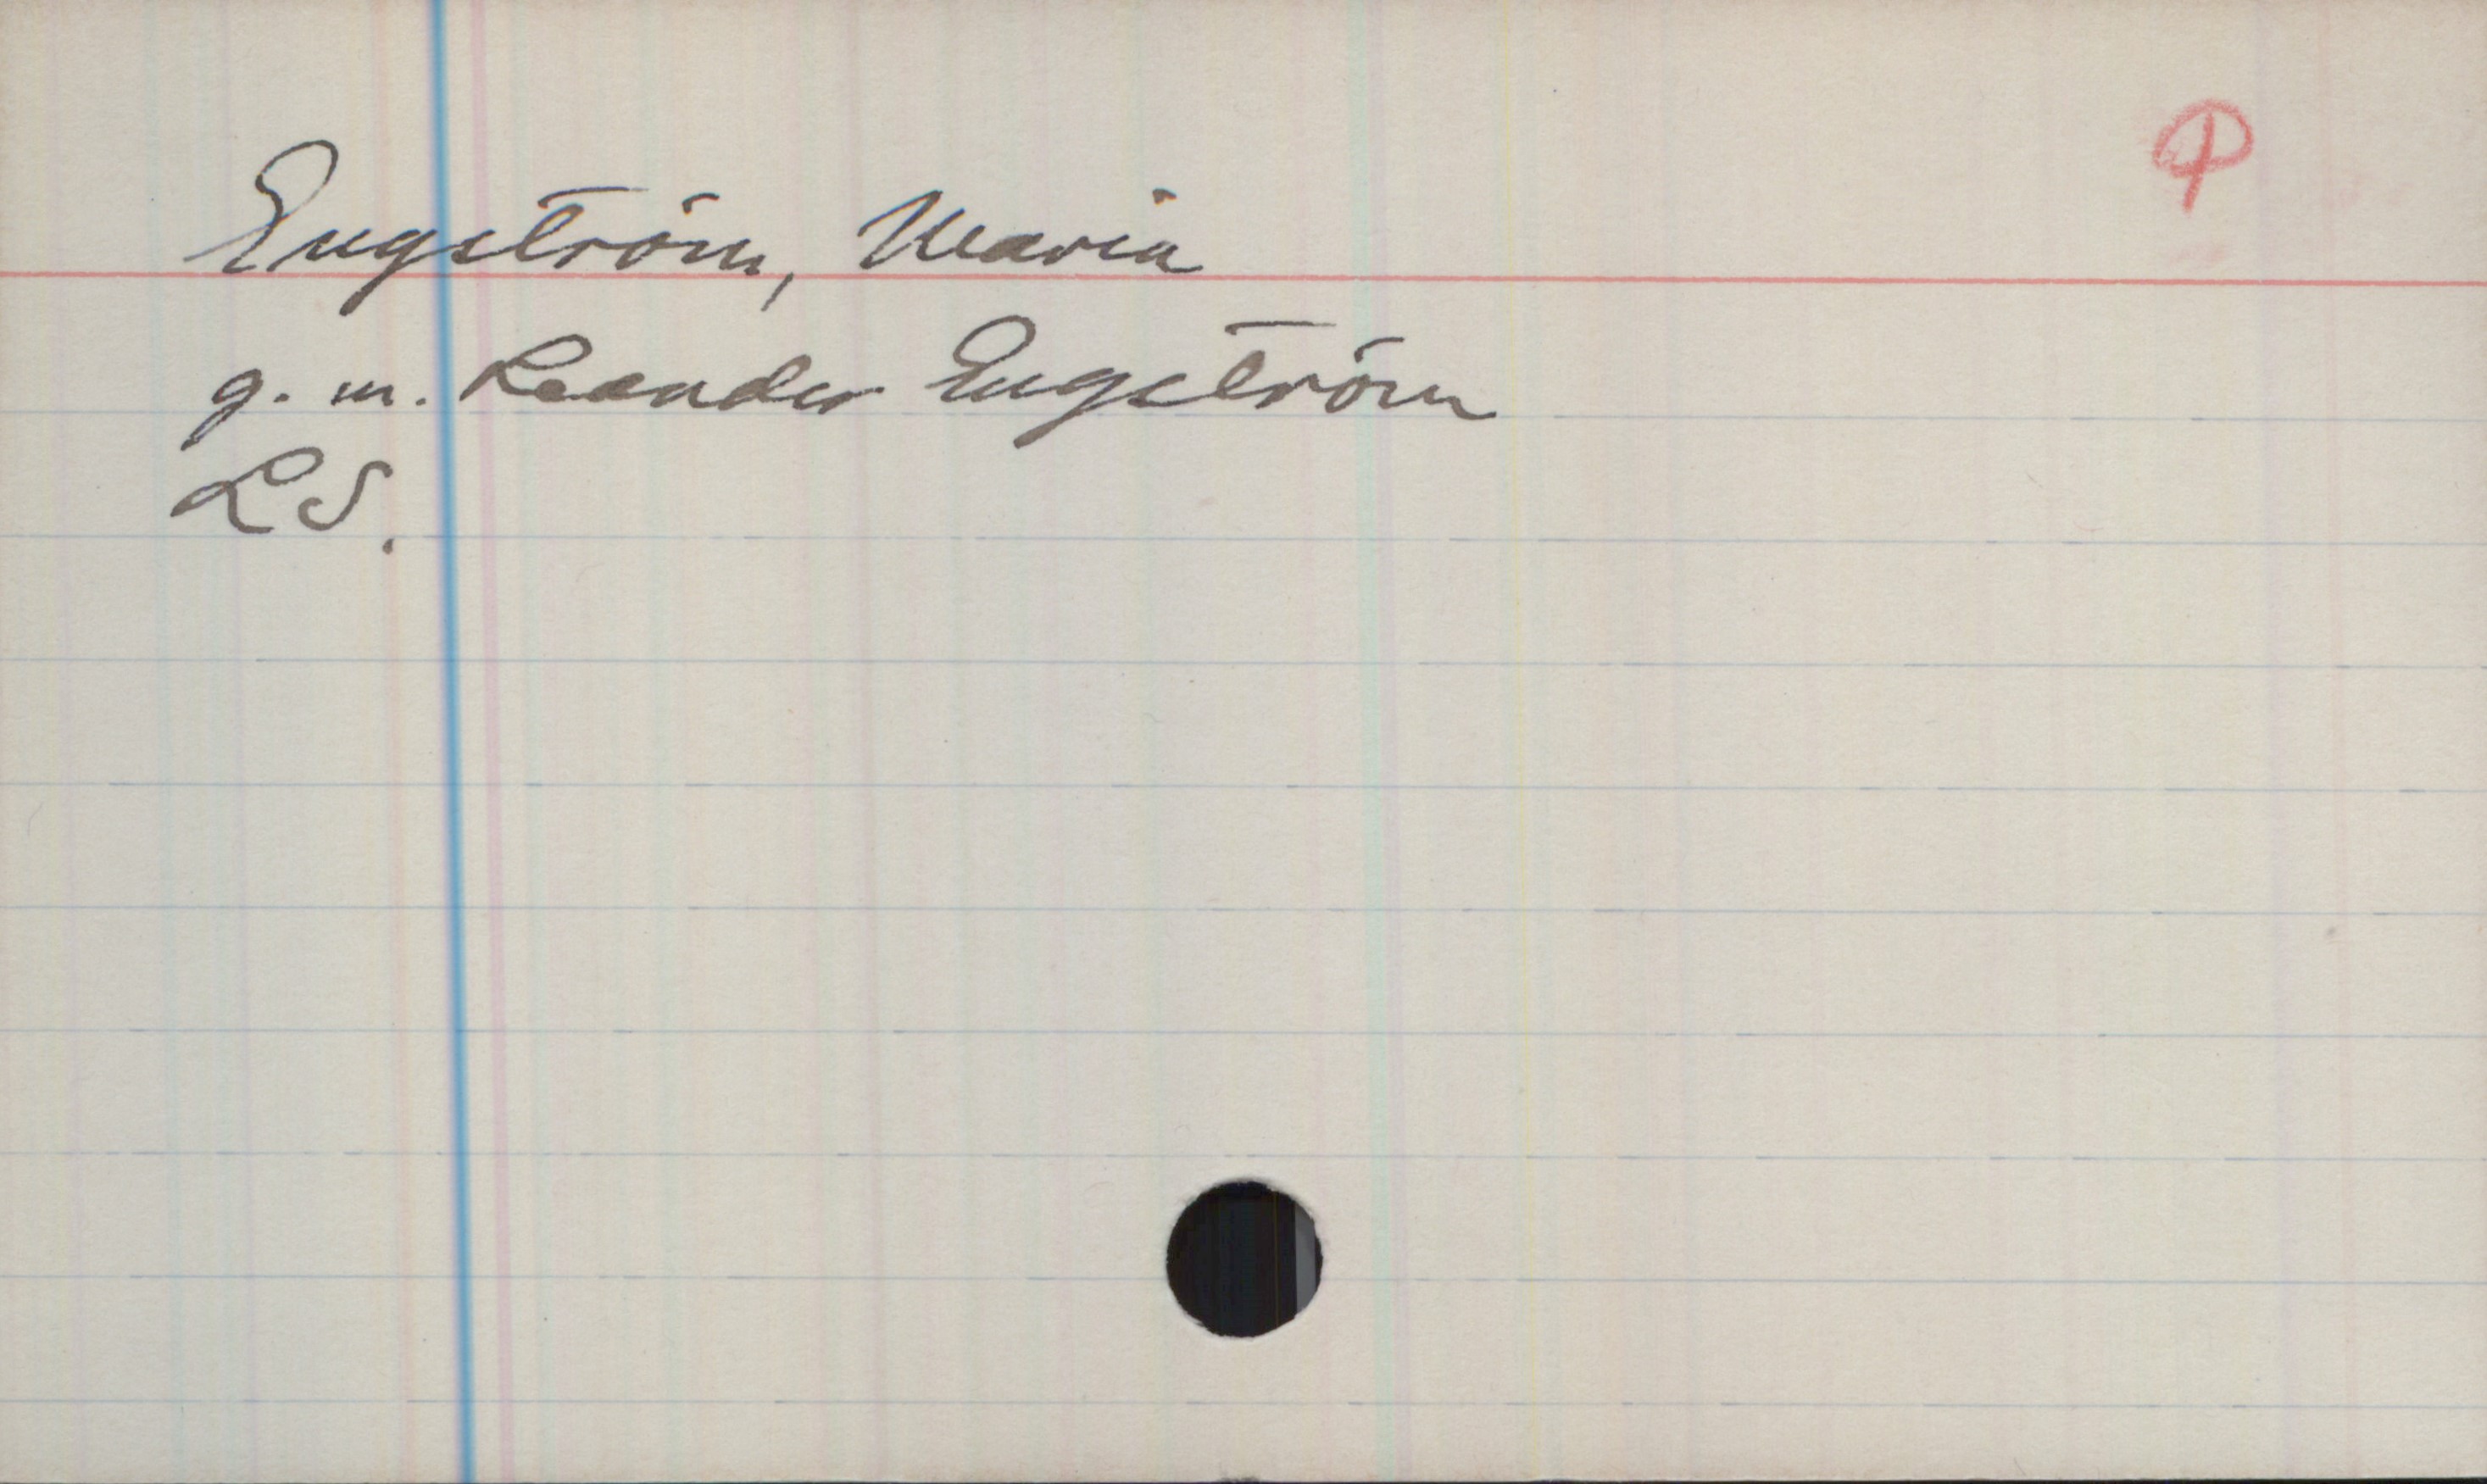 P
Engström, Maria
g. m. Leander Engström
LS.